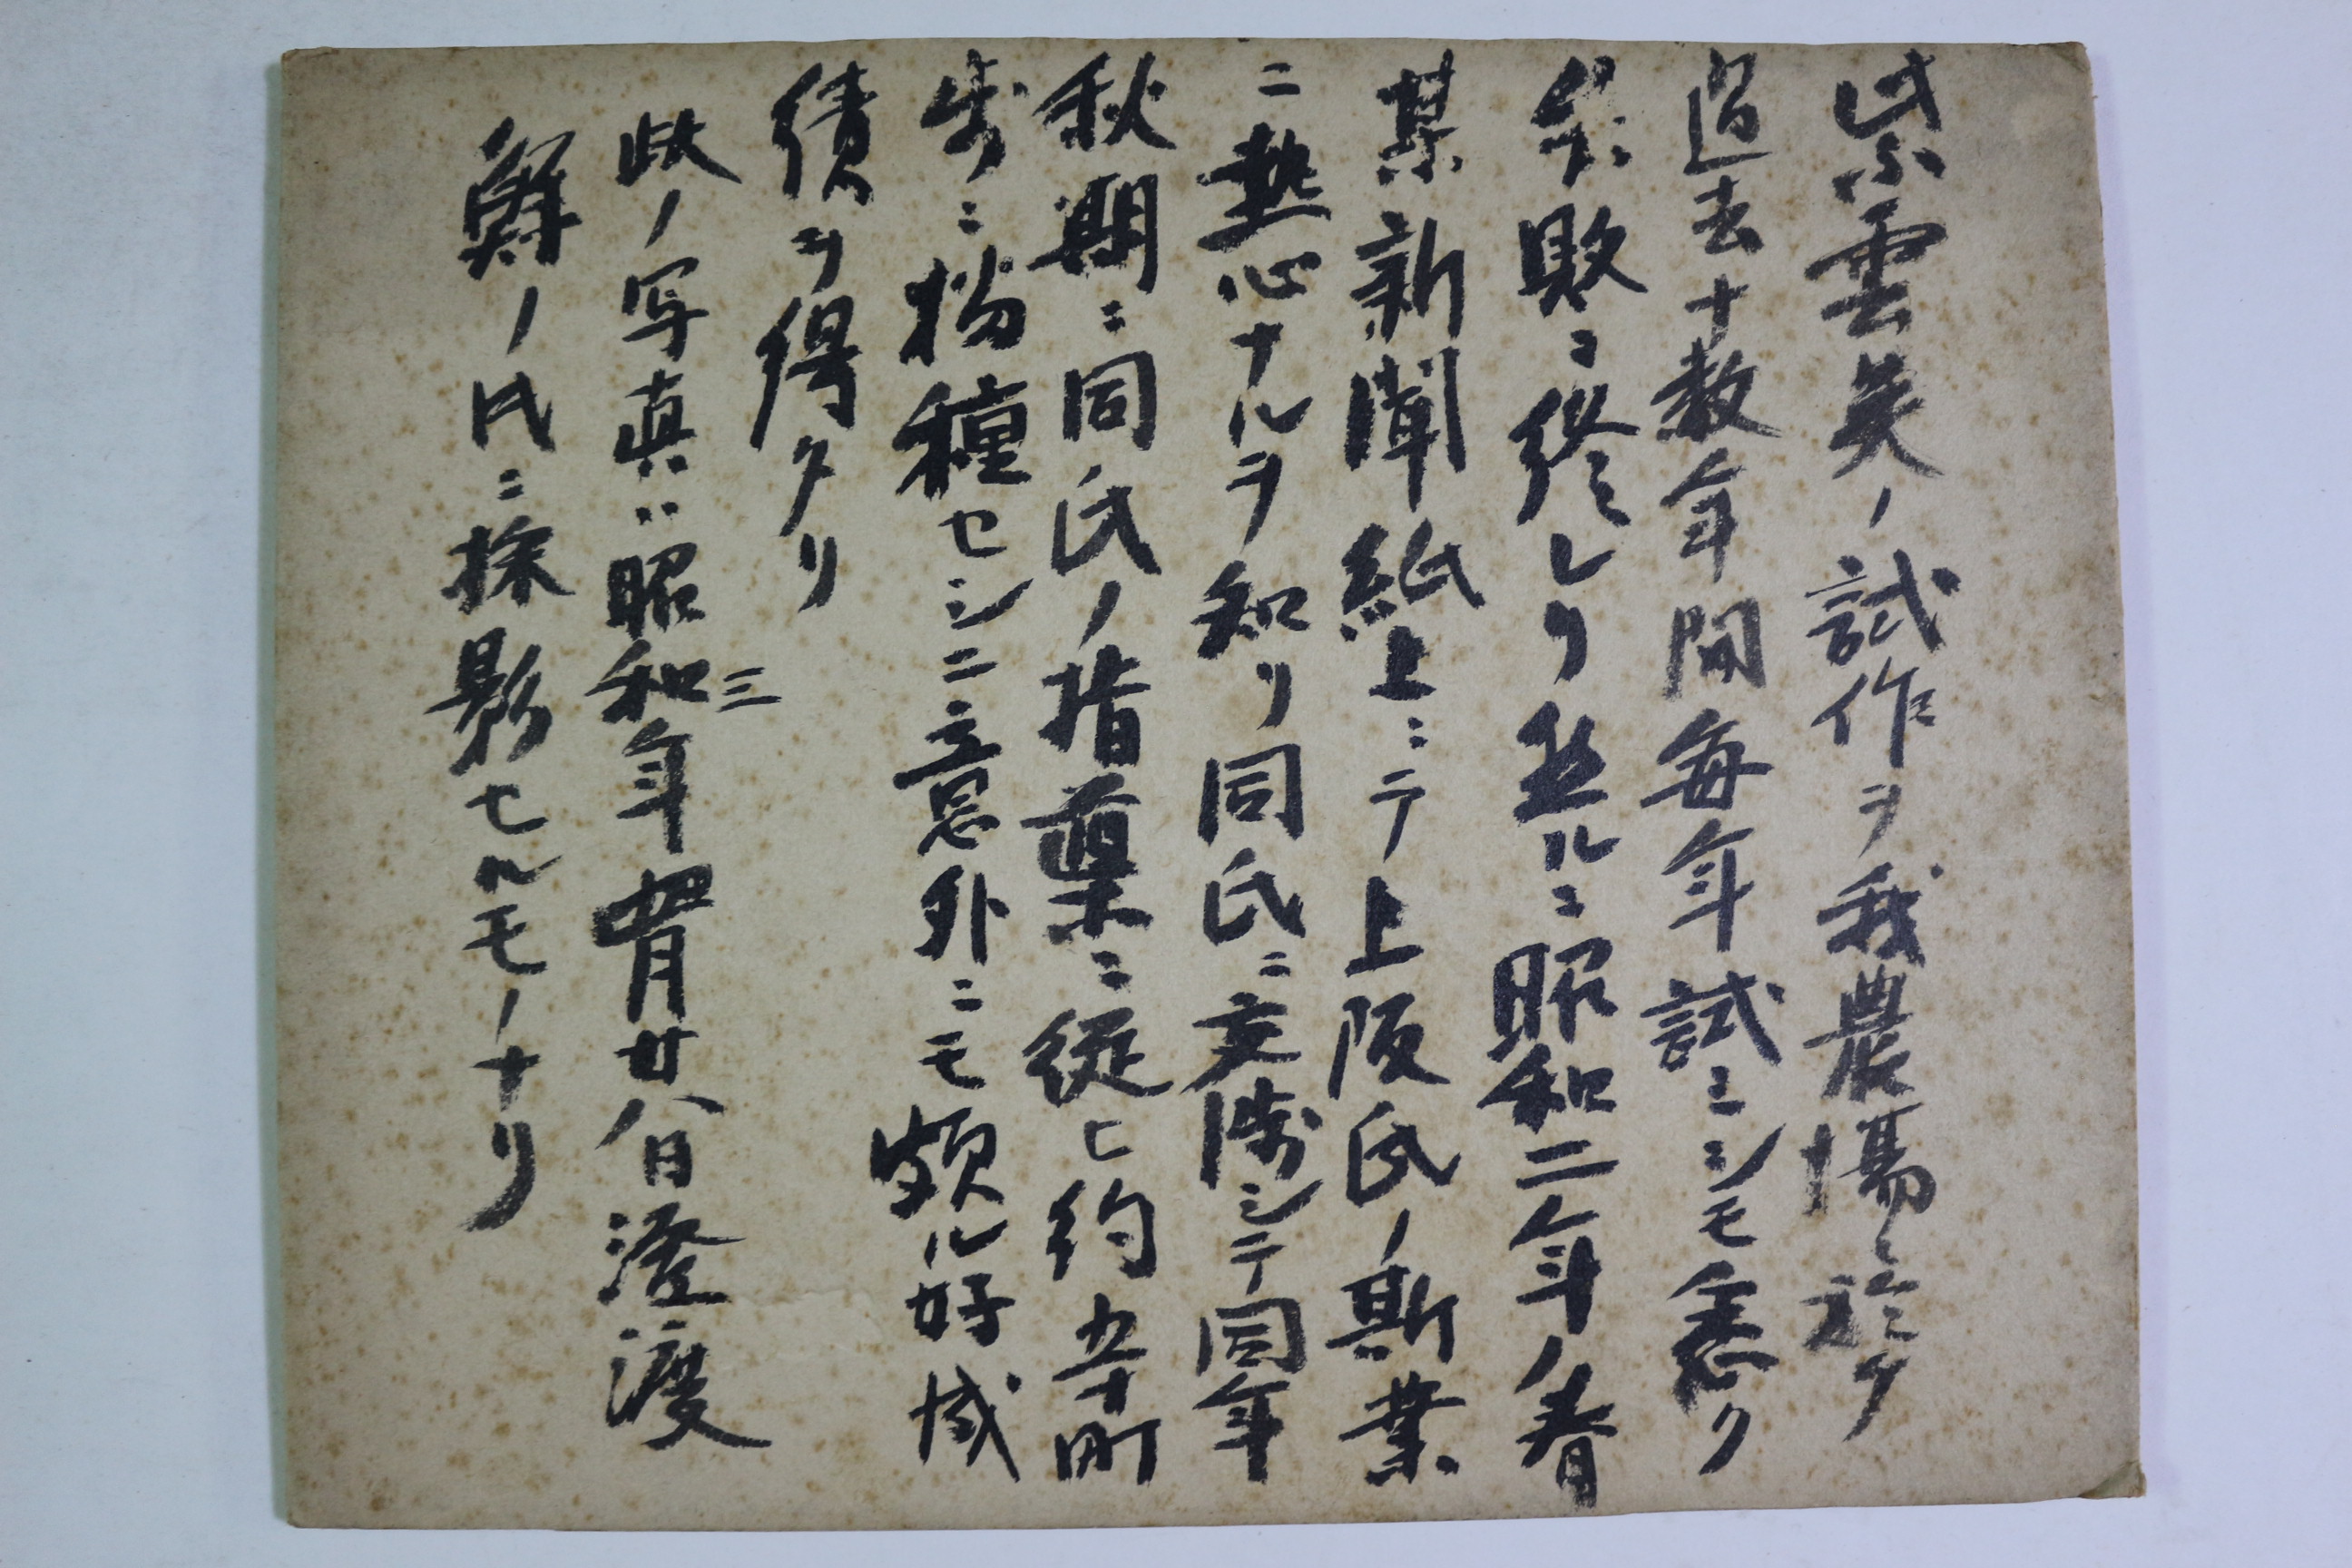 紫雲英ノ試作ヲ我農場ニ於テ
過去十数年間毎年試ミシモ悉ク
失敗ニ終レリ然ルニ昭和二年ノ春
某新聞紙上ニテ上阪氏ノ斯業
ニ熱心ナルヲ知リ同氏ニ交渉シテ同年
秋期ニ同氏ノ指導ニ従ヒ約五十町
歩ニ播種セシニ意外ニモ頗ル好成
績ヲ得タリ
此ノ写真ハ昭和三年四月廿八日澄渡
鮮ノ氏ニ採影セルモノナリ